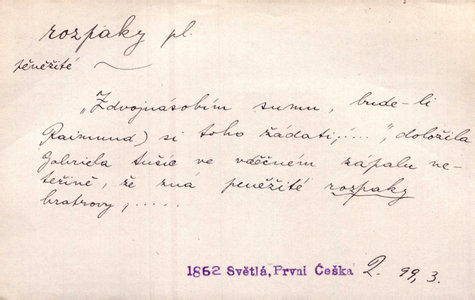 rozpaky pl.
peněžité
„Zdvojnásobím sumu, bude-li
Raimund) si toho žádati;....", doložila
Gabriela tušíc ve vděčném zápalu
že zná peněžité rozpaky
bratrovy;.....
1862 Světlá, První Češka 2. 99, 3.